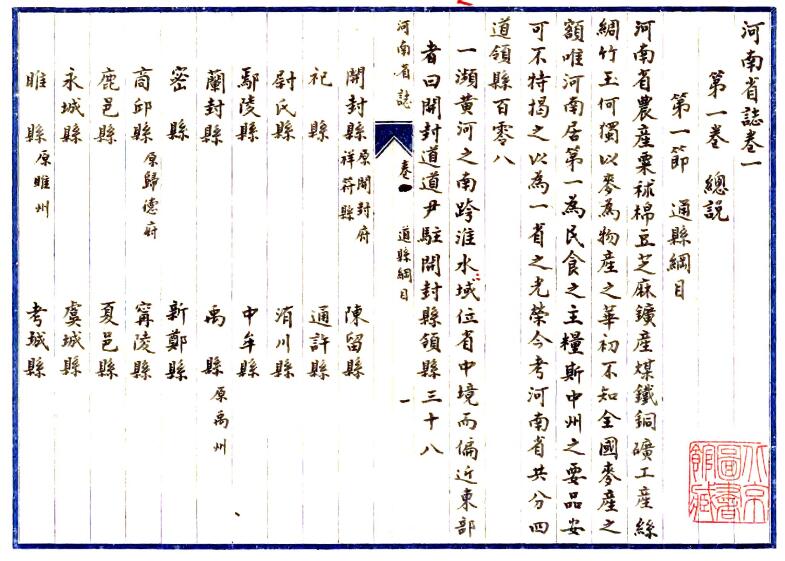 河南省誌卷一
第一卷 總説
第一節 通縣綱目
河南省農産粟秫棉豆芝麻鑛産煤鐵銅礦工産絲
綢竹玉何獨以麥為物産之華初不知全國麥産之
額唯河南居第一為民食之主糧斯中州之要品安
可不特揭之以為一省之光榮今考河南省共分四
道領縣百零八
一瀕黃河之南跨淮水域位省中境而偏近東部
者曰開封道道尹駐開封縣領縣三十八
河南省誌 卷一 道縣綱目 一
開封縣 原開封府祥符縣 陳留縣
祀縣 通許縣
尉氏縣 洧川縣
鄢陵縣 中牟縣
蘭封縣 禹縣 原禹州
密縣 新鄭縣
商邱縣 原歸德府 甯陵縣
鹿邑縣 夏邑縣
永城縣 虞城縣
睢縣 原睢州 考城縣
北京圖書館藏